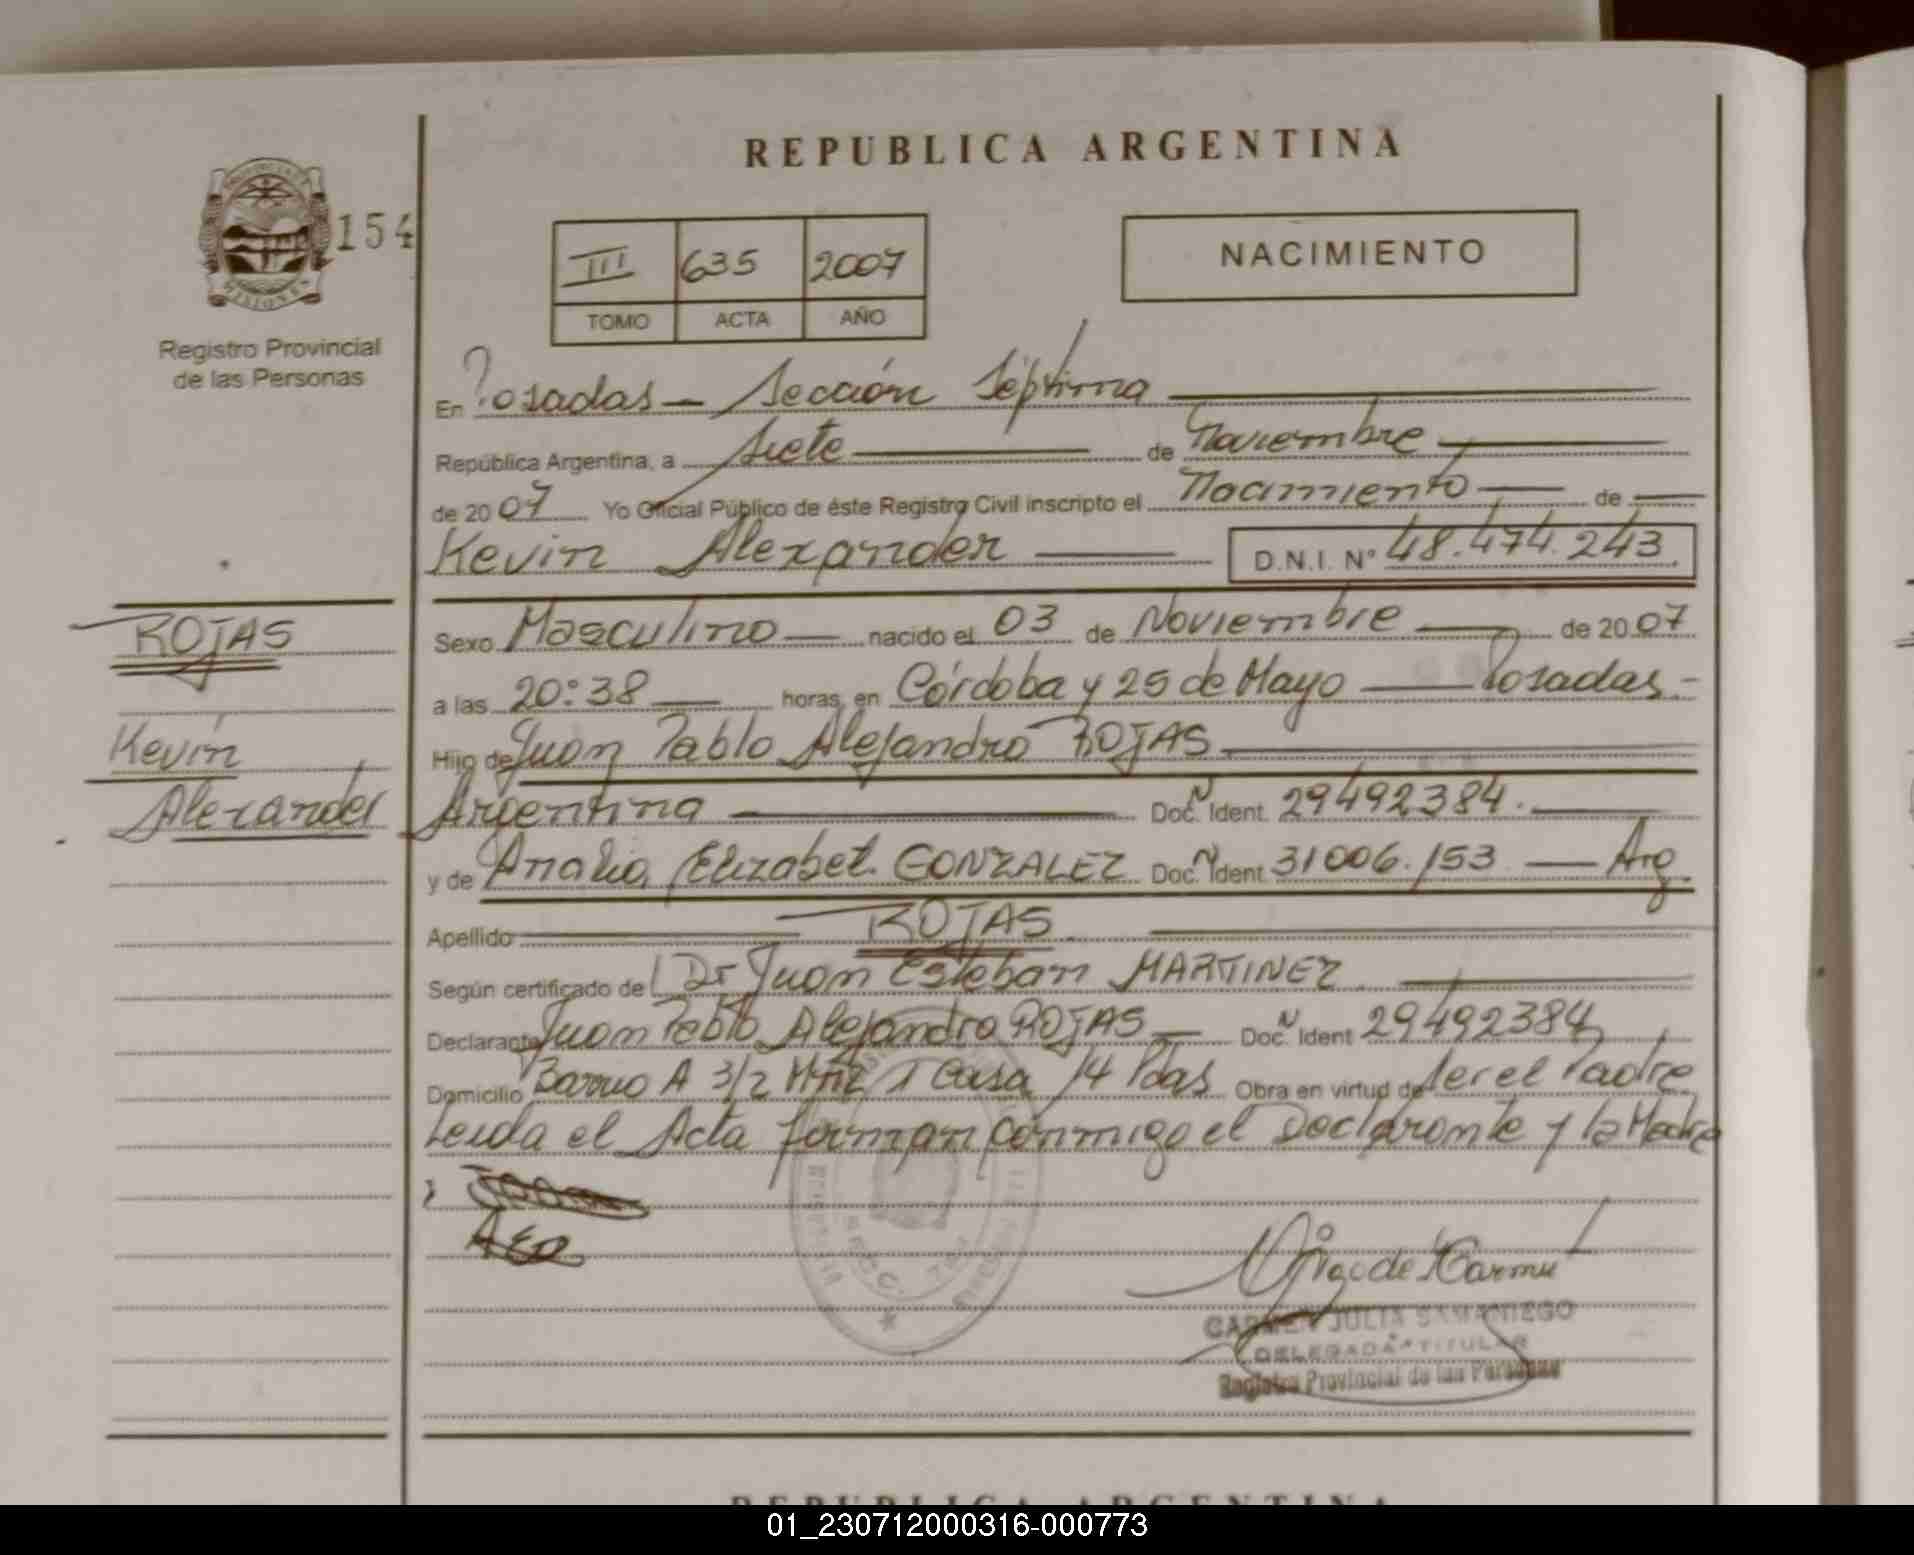 REPUBLICA ARGENTINA
PROVINCIA
MISIONES
154
Registro Provincial
de las Personas
III 635 2007
TOMO ACTA AÑO
NACIMIENTO
En Posadas - Sección Séptima
República Argentina, a Siete de Noviembre
de 2007 Yo Oficial Público de éste Registro Civil inscripto el Nacimiento de
Kevin Alexander D.N.I. Nº 48.474.243
ROJAS
Kevin
Alexander
Sexo Masculino nacido el 03 de Noviembre de 2007
a las 20:38 horas, en Córdoba y 25 de Mayo Posadas -
Hijo de Juan Pablo Alejandro ROJAS
Argentina Doc. Ident. 29492384.
y de Analia Elizabet GONZALEZ Doc. Ident. 31006.153 Arg.
Apellido ROJAS
Según certificado de Dr Juan Esteban MARTINEZ
Declarante Juan Pablo Alejandro ROJAS Doc. Ident 29492384
Domicilio Barrio A 3/2 Mnz 1 Casa 14 Pdas Obra en virtud de ser el Padre
Leida el Acta firman conmigo el Declarante y la Madre
CARMEN JULIA SAMANIEGO
DELEGADA TITULAR
Registro Provincial de las Personas
REPUBLICA ARGENTINA
01_230712000316-000773